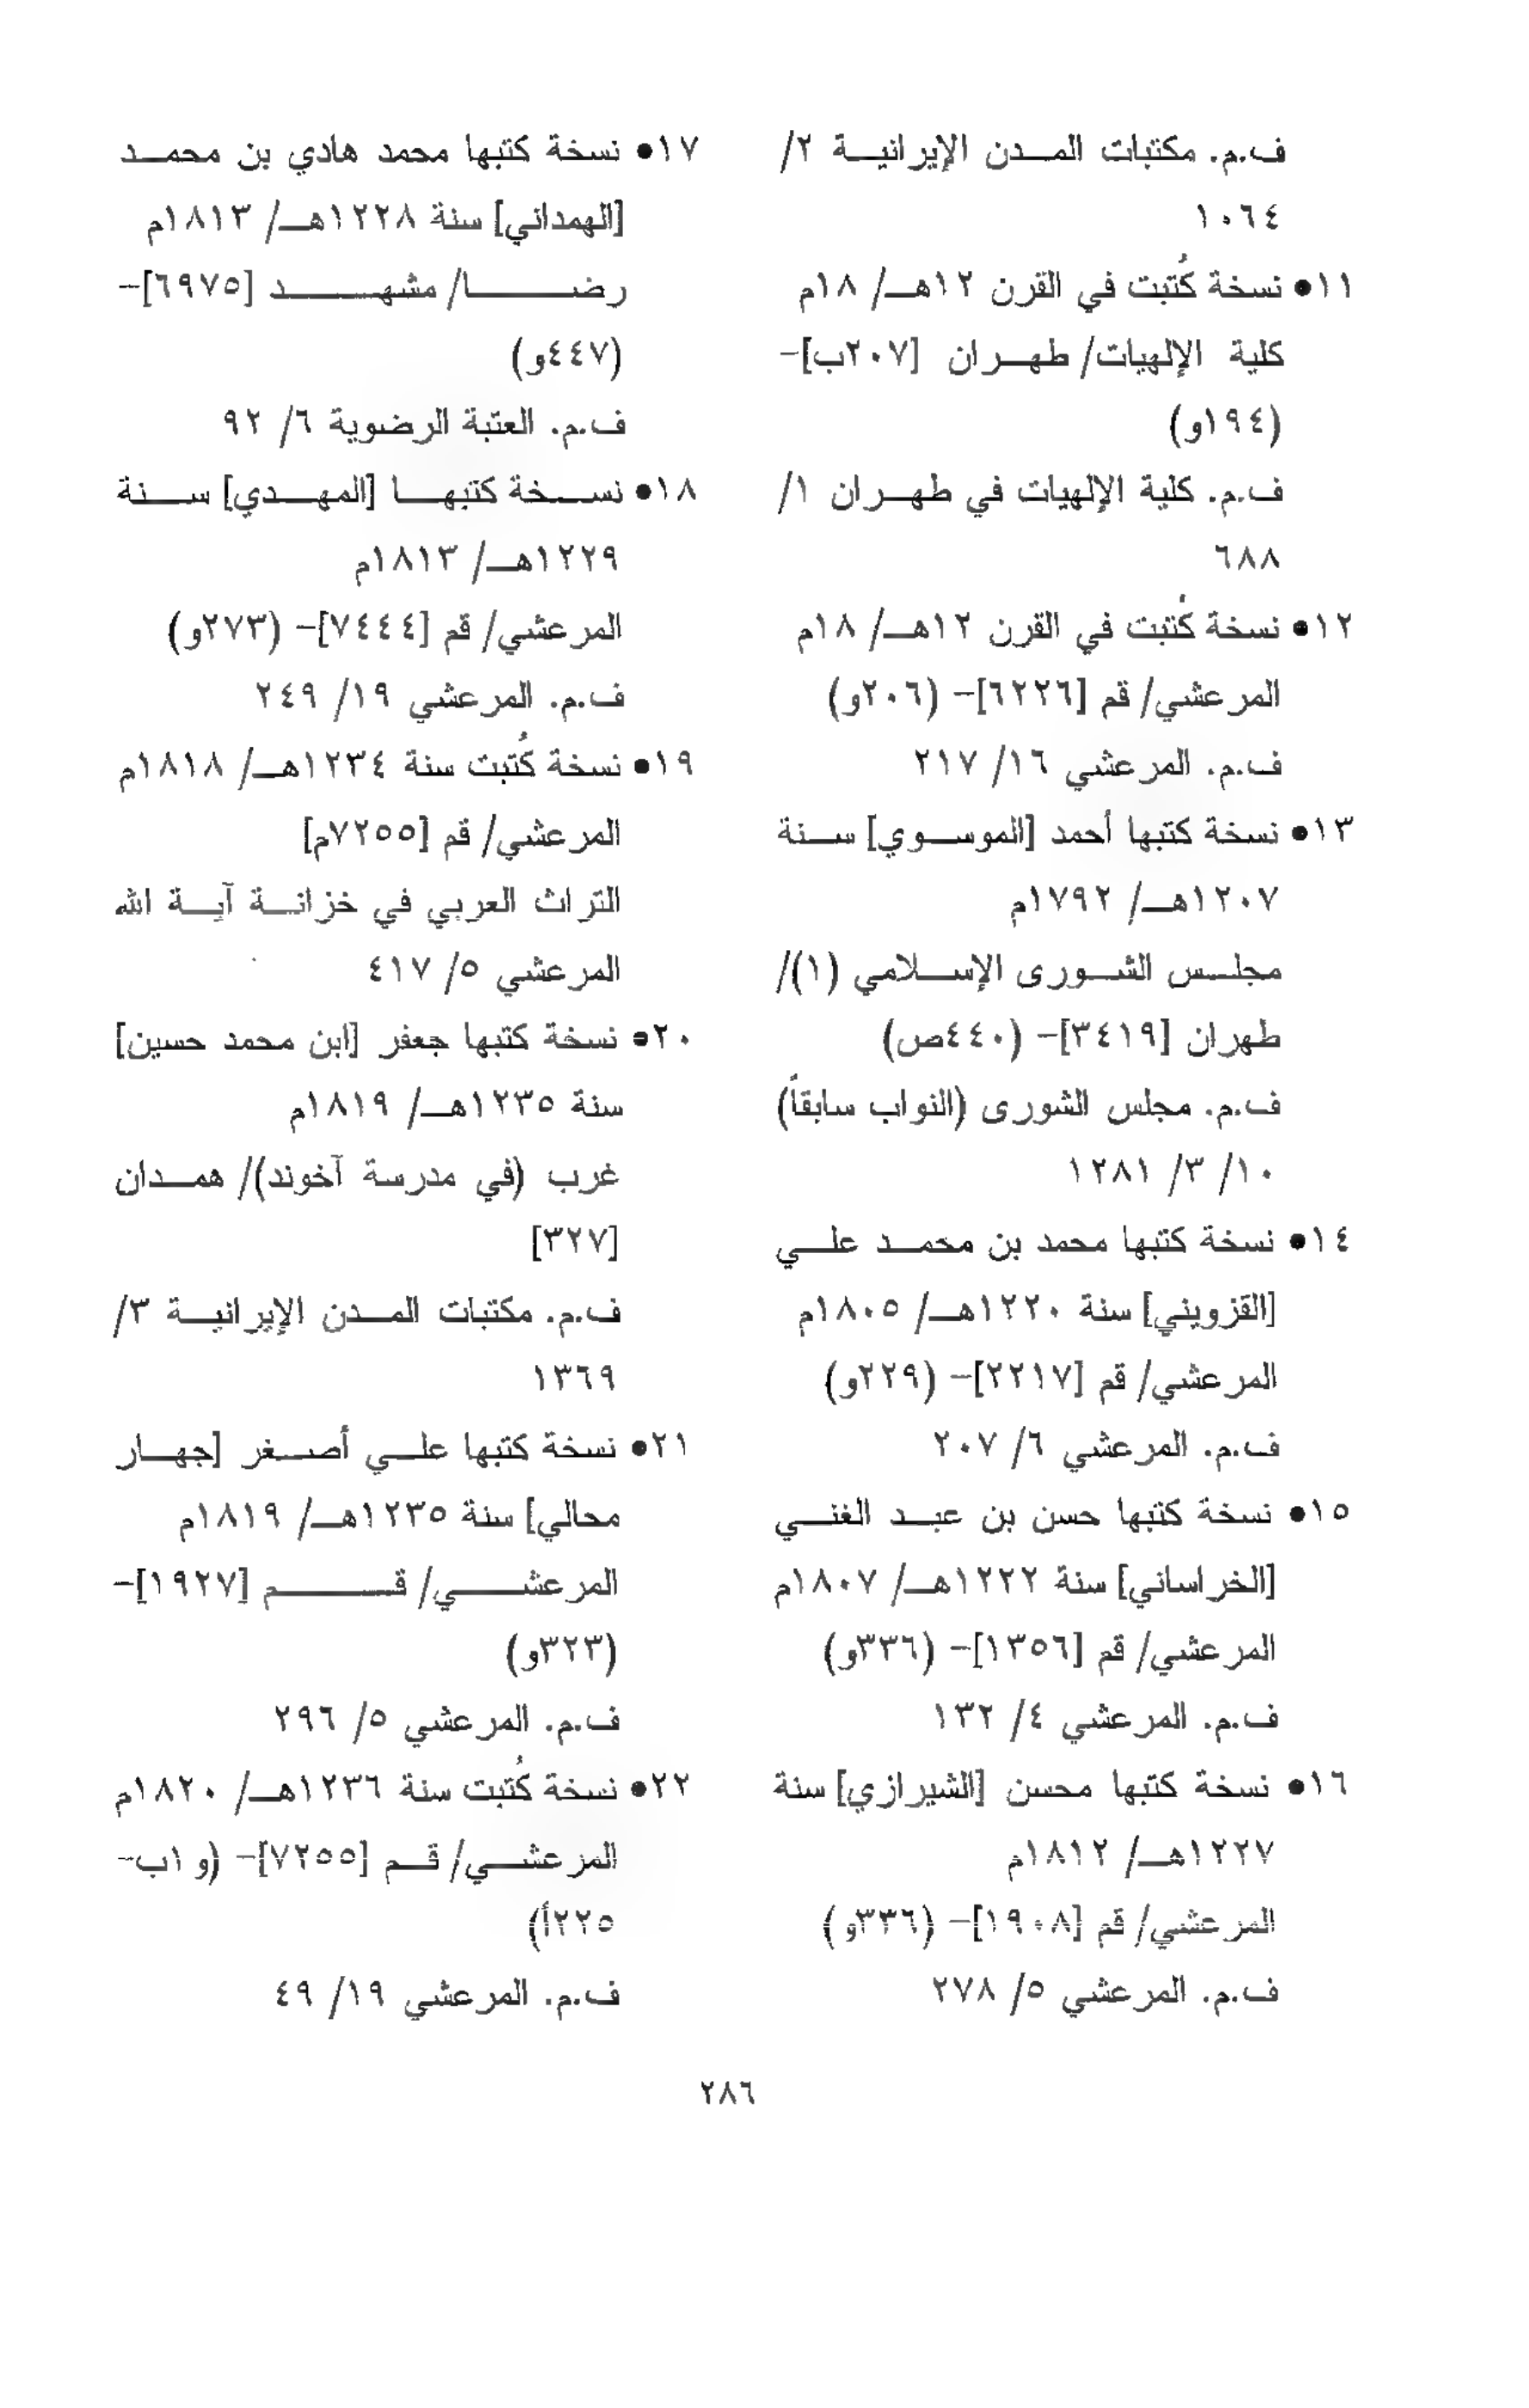 ف.م. مكتبات المدن الإيرانية ٢/
١٠٦٤
١١• نسخة كُتبت في القرن ١٢هـ/ ١٨م
كلية الإلهيات/ طهران [٢٠٧ب]-
(١٩٤و)
ف.م. كلية الإلهيات في طهران ١/
٦٨٨
١٢• نسخة كُتبت في القرن ١٢هـ/ ١٨م
المرعشي/ قم [٦٢٢٦]- (٢٠٦و)
ف.م. المرعشي ١٦/ ٢١٧
١٣• نسخة كتبها أحمد [الموسوي] سنة
١٢٠٧هـ/ ١٧٩٢م
مجلس الشورى الإسلامي (١)/
طهران [٣٤١٩]- (٤٤٠ص)
ف.م. مجلس الشورى (النواب سابقاً)
١٠/ ٣/ ١٢٨١
١٤• نسخة كتبها محمد بن محمد علي
[القزويني] سنة ١٢٢٠هـ/ ١٨٠٥م
المرعشي/ قم [٢٢١٧]- (٢٢٩و)
ف.م. المرعشي ٦/ ٢٠٧
١٥• نسخة كتبها حسن بن عبد الغني
[الخراساني] سنة ١٢٢٢هـ/ ١٨٠٧م
المرعشي/ قم [١٣٥٦]- (٣٣٦و)
ف.م. المرعشي ٤/ ١٣٢
١٦• نسخة كتبها محسن [الشيرازي] سنة
١٢٢٧هـ/ ١٨١٢م
المرعشي/ قم [١٩٠٨]- (٣٣٦و)
ف.م. المرعشي ٥/ ٢٧٨
١٧• نسخة كتبها محمد هادي بن محمد
[الهمداني] سنة ١٢٢٨هـ/ ١٨١٣م
رضا/ مشهد [٦٩٧٥]-
(٤٤٧و)
ف.م. العتبة الرضوية ٦/ ٩٢
١٨• نسخة كتبها [المهدي] سنة
١٢٢٩هـ/ ١٨١٣م
المرعشي/ قم [٧٤٤٤]- (٢٧٣و)
ف.م. المرعشي ١٩/ ٢٤٩
١٩• نسخة كُتبت سنة ١٢٣٤هـ/ ١٨١٨م
المرعشي/ قم [٧٢٥٥م]
التراث العربي في خزانة آية الله
المرعشي ٥/ ٤١٧
٢٠• نسخة كتبها جعفر [ابن محمد حسين]
سنة ١٢٣٥هـ/ ١٨١٩م
غرب (في مدرسة آخوند)/ همدان
[٣٢٧]
ف.م. مكتبات المدن الإيرانية ٣/
١٣٦٩
٢١• نسخة كتبها علي أصغر [جهار
محالي] سنة ١٢٣٥هـ/ ١٨١٩م
المرعشي/ قم [١٩٢٧]-
(٣٢٣و)
ف.م. المرعشي ٥/ ٢٩٦
٢٢• نسخة كُتبت سنة ١٢٣٦هـ/ ١٨٢٠م
المرعشي/ قم [٧٢٥٥]- (و ١ب-
٢٢٥أ)
ف.م. المرعشي ١٩/ ٤٩
٢٨٦